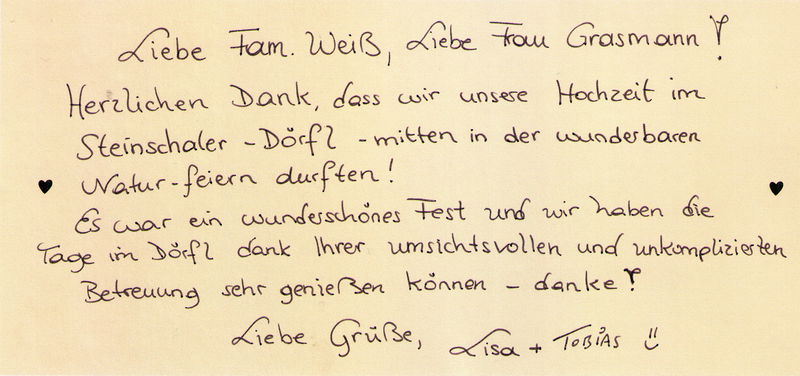 Liebe Fam. Weiß, Liebe Frau Grasmann!
Herzlichen Dank, dass wir unsere Hochzeit im
Steinschaler-Dörfl - mitten in der wunderbaren
Natur - feiern durften!
Es war ein wunderschönes Fest und wir haben die
Tage im Dörfl dank Ihrer umsichtsvollen und unkomplizierten
Betreuung sehr genießen können - danke!
Liebe Grüße, Lisa + Tobias